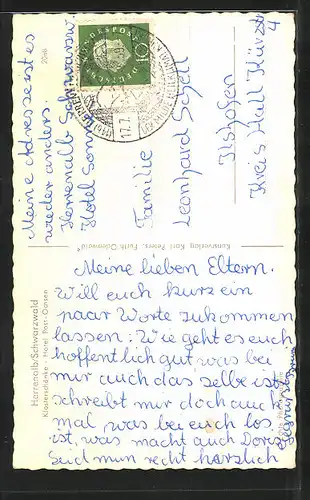 Meine lieben Eltern.
Will euch kurz ein
paar Worte zukommen
lassen: Wie geht es euch
hoffentlich gut was bei
mir auch das selbe ist
schreibt mir doch auch
mal, was bei euch los
ist, was macht auch Doris
Seid nun recht herzlich
gegrüßt
Meine Adresse ist
wieder anders.
Herrenalb Schwarzw.
Hotel
Familie
Leonhard Schell
Ilshofen
Kreis Hall
4
Herrenalb/Schwarzwald
Klosterschänke · Hotel Post-Ochsen
Kunstverlag Karl Peters, Fürth/Odenwald
DEUTSCHE BUNDESPOST
10